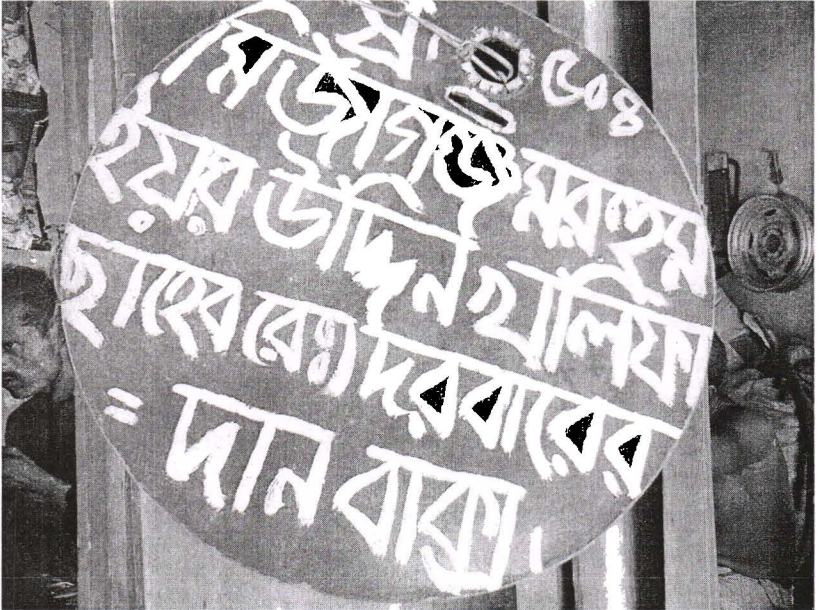 নং ৫০৪
মির্জাগঞ্জ মরহুম
ইয়ার উদ্দিন খলিফা
ছাহেব রেঃ) দরবারের
= দান বাক্স।